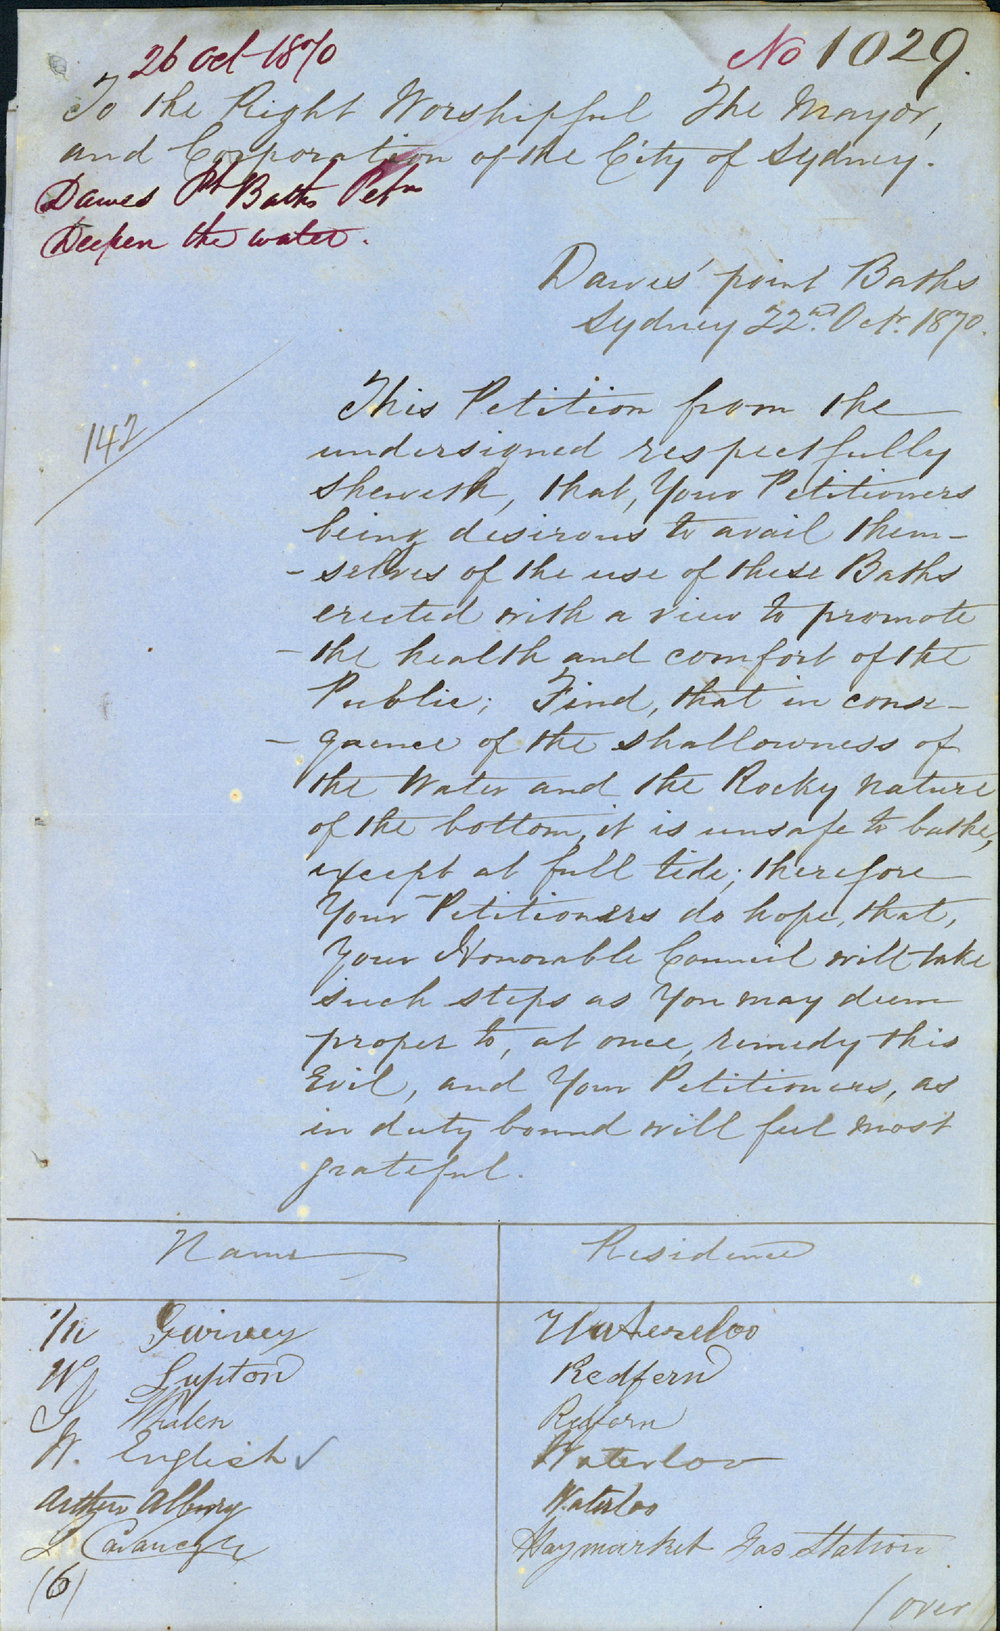 26 Oct 1870
No 1029.
To the Right Worshipful The Mayor,
and Corporation of the City of Sydney.
Dawes Pt Baths Petn
Deepen the water.
Dawes' point Baths
Sydney 22nd. Octr. 1870.
142
This Petition from the
undersigned respectfully
sheweth, that, Your Petitioners
being desirous to avail them-
-selves of the use of these Baths
erected with a view to promote
-the health and comfort of the
Public; Find, that in conse-
-quence of the shallowness of
the Water and the Rocky nature
of the bottom, it is unsafe to bathe,
except at full tide; therefore
Your Petitioners do hope, that,
Your Honorable Council will take
such steps as You may deem
proper to, at once, remedy this
Evil, and Your Petitioners, as
in duty bound will feel most
grateful.
Name Residence
Waterloo
W Lupton Redfern
J Whalen Redfern
W. English Waterloo
Arthur Albury Waterloo
Haymarket Gas Station
(6)
(over